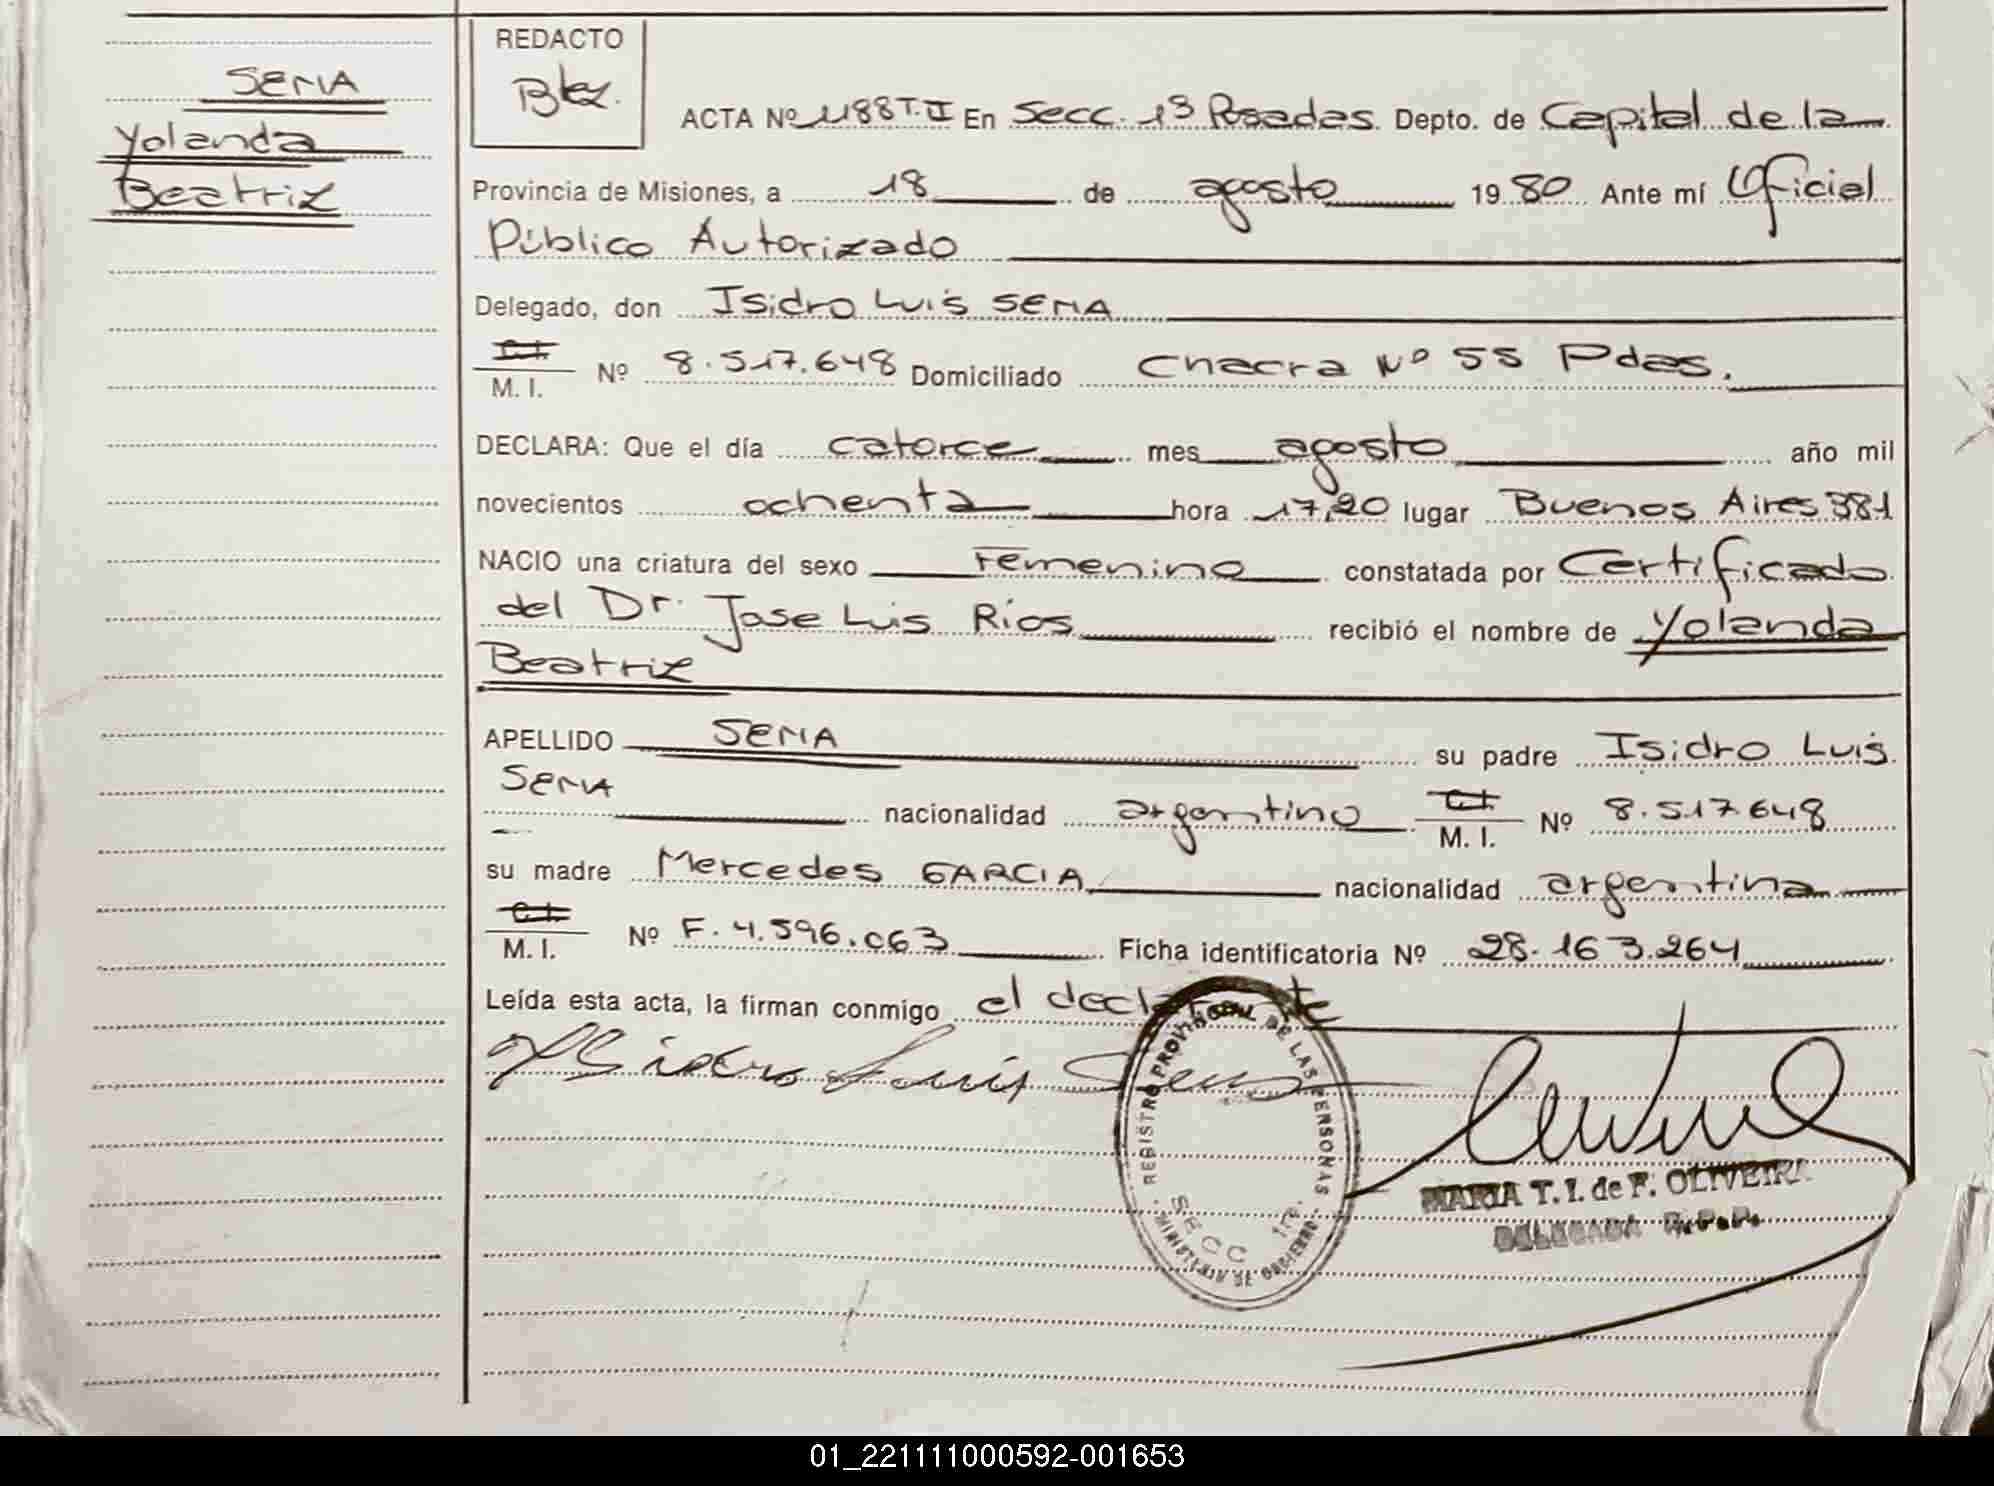 SENA
Yolanda
Beatriz
REDACTO
Btez.
ACTA Nº 1188 T. II En Secc. 1ª Posadas. Depto. de Capital de la
Provincia de Misiones, a 18 de agosto 1980 Ante mí Oficial
Público Autorizado
Delegado, don Isidro Luis SENA
C.I.
M. I. Nº 8.517.648 Domiciliado Chacra Nº 55 Pdas.
DECLARA: Que el día catorce mes agosto año mil
novecientos ochenta hora 17,20 lugar Buenos Aires 381
NACIO una criatura del sexo Femenino constatada por Certificado
del Dr. Jose Luis Ríos recibió el nombre de Yolanda
Beatriz
APELLIDO SENA su padre Isidro Luis
SENA nacionalidad argentino C.I. M. I. Nº 8.517.648
su madre Mercedes GARCIA nacionalidad argentina
C.I.
M. I. Nº F. 4.596.063 Ficha identificatoria Nº 28.163.264
Leída esta acta, la firman conmigo el declarante
Isidro Luis Sena
REGISTRO PROVINCIAL DE LAS PERSONAS
SECC 1ra.
MINISTERIO DE GOBIERNO
MARIA T. I. de F. OLIVEIRA
DELEGADA R.P.P.
01_221111000592-001653